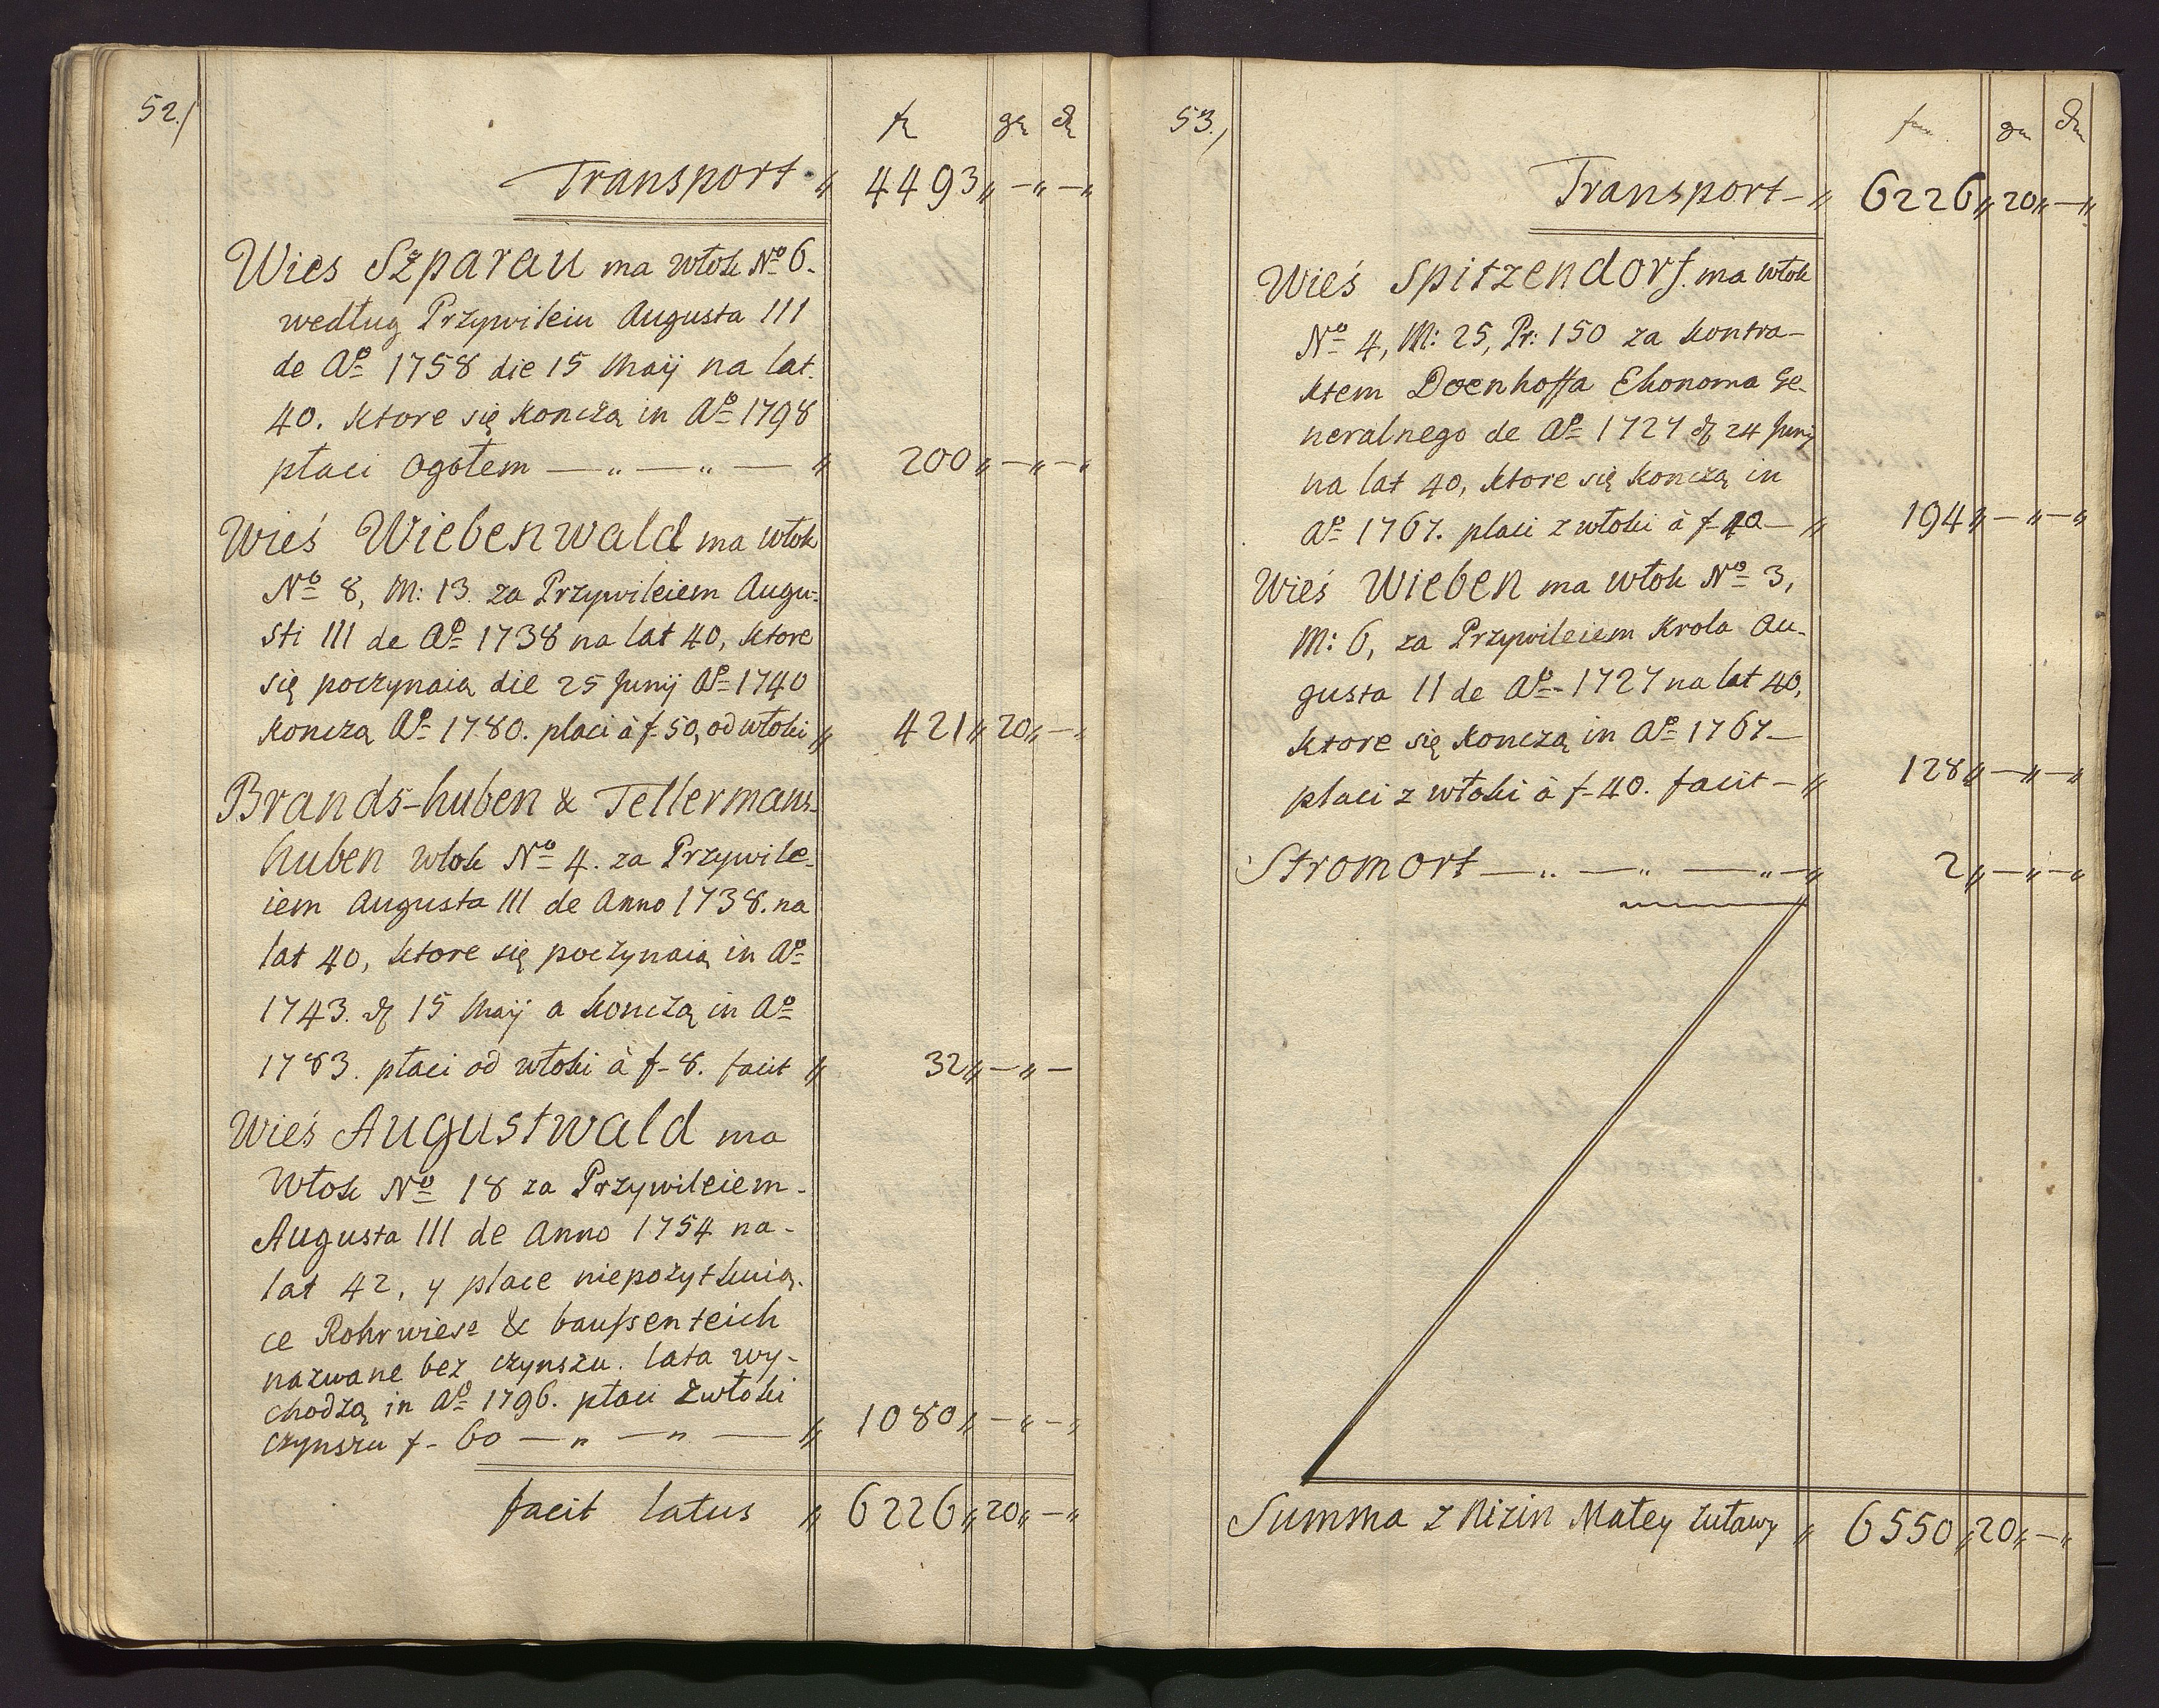 52./
fl gr d
Transport „ 4493 „ — „ — „
Wies Szparau ma włok No 6.
według Przywileiu Augusta III
de Ao 1758 die 15 Maij na lat.
40. ktore się koncżą in Ao 1798
płaci ogołem — „ — „ — „ 200 „ — „ — „
Wieś Wiebenwald ma włok
No 8, M: 13. za Przywileiem Augu-
sti III de Ao 1738 na lat 40, ktore
się poczynaią die 25 Junij Ao 1740
koncżą Ao 1780. płaci à f 50, od włoki „ 421 „ 20 „ — „
Brands-huben & Tellermans-
huben włok No 4. za Przywile-
iem Augusta III de Anno 1738. na
lat 40, ktore się poczynaią in Ao
1743. d 15 Maij a koncżą in Ao
1783. płaci od włoki à f 8. facit „ 32 „ — „ —
Wieś Augustwald ma
Włok No 18 za Przywileiem-
Augusta III de Anno 1754 na-
lat 42, y place niepożytkuią-
ce Rohrwiese & baussenteich
nazwane bez czynszu. lata wy-
chodzą in Ao 1796. płaci z włoki
czynszu f- 60 — „ — „ — „ 1080 „ — „ — „
facit latus „ 6226 „ 20 „ — „
53./
Transport — „ 6226 „ 20 „ — „
Wieś Spitzendorf. ma włok
No 4, M: 25, Pr: 150 za kontra-
ktem Doenhoffa Ekonoma Ge-
neralnego de Ao 1727 d 24 Junij
na lat 40, ktore się koncżą in
Ao 1767. płaci z włoki à f 40 — „ 194 „ — „ — „
Wieś Wieben ma włok No 3,
M: 6, za Przywileiem Krola Au-
gusta II de Ao 1727 na lat 40,
ktore się koncżą in Ao 1767 —
płaci z włoki à f 40. facit — „ 128 „ — „ — „
Stromort — „ — „ — „ — „ 2 „ — „ — „
Summa z Nizin Małey Zuławy „ 6550 „ 20 „ — „